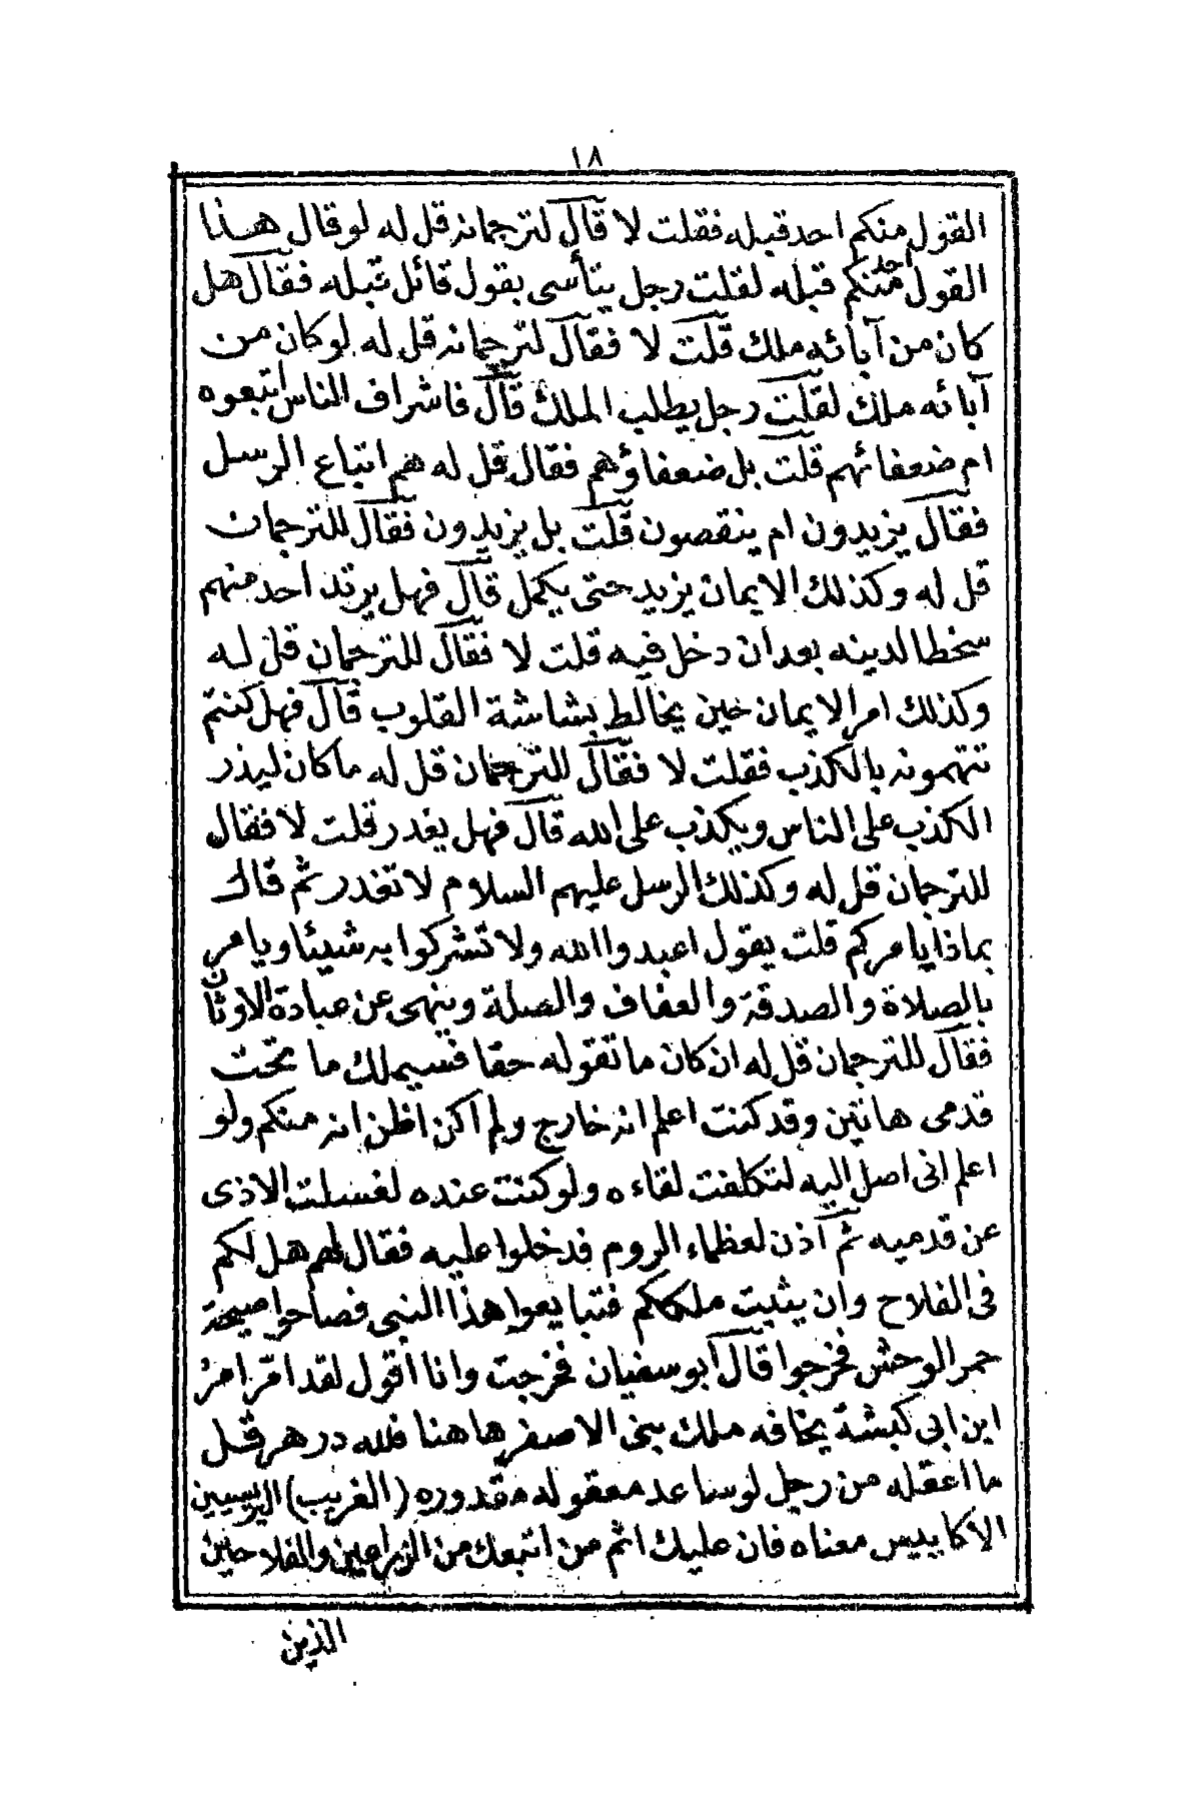 ١٨
القول منكم احد قبله فقلت لا قال لترجمانه قل له لو قال هذا
القول احد منكم قبله لقلت رجل يتأسى بقول قائل قبله فقال هل
كان من آبائه ملك قلت لا فقال لترجمانه قل له لو كان من
آبائه ملك لقلت رجل يطلب الملك قال فاشراف الناس اتبعوه
ام ضعفائهم قلت بل ضعفاؤهم فقال قل له هم اتباع الرسل
فقال يزيدون ام ينقصون قلت بل يزيدون فقال للترجمان
قل له وكذلك الايمان يزيد حتى يكمل قال فهل يرتد احد منهم
سخطا لدينه بعد ان دخل فيه قلت لا فقال للترجمان قل له
وكذلك امر الايمان حين يخالط بشاشة القلوب قال فهل كنتم
تتهمونه بالكذب فقلت لا فقال للترجمان قل له ما كان ليذر
الكذب على الناس ويكذب على الله قال فهل يغدر قلت لا فقال
للترجمان قل له وكذلك الرسل عليهم السلام لا تغدر ثم قال
بماذا يامركم قلت يقول اعبدوا الله ولا تشركوا به شيئا ويامر
بالصلاة والصدقة والعفاف والصلة وينهى عن عبادة الاوثان
فقال للترجمان قل له ان كان ما تقوله حقا فسيملك ما تحت
قدمى هاتين وقد كنت اعلم انه خارج ولم اكن اظن انه منكم ولو
اعلم انى اصل اليه لتكلفت لقاءه ولو كنت عنده لغسلت الاذى
عن قدميه ثم آذن لعظماء الروم فدخلوا عليه فقال لهم هل لكم
فى الفلاح وان يثبت ملككم فتبايعوا هذا النبى فصاحوا صيحة
حمر الوحش فخرجوا قال ابو سفيان فخرجت وانا اقول لقد امّر امر
ابن ابى كبشة يخافه ملك بنى الاصفر هاهنا فلله در هرقل
ما اعقله من رجل لو ساعد معقوله مقدوره (الغريب) اليريسيين
الاكابيس معناه فان عليك اثم من اتبعك من الزراعين والفلاحين
الذين